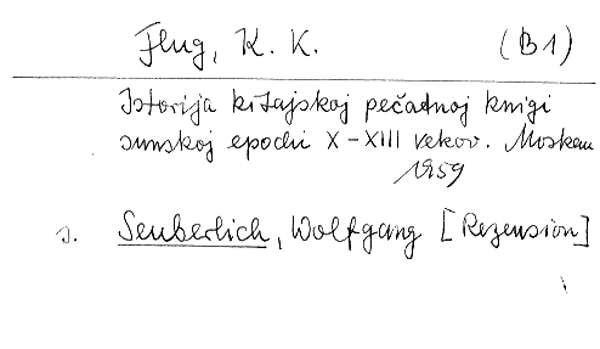 Flug, K. K. (B1)
Istorija kitajskoj pečatnoj knigi
sunskoj epochi X-XIII vekov. Moskau
1959
s. Seuberlich, Wolfgang [Rezension]